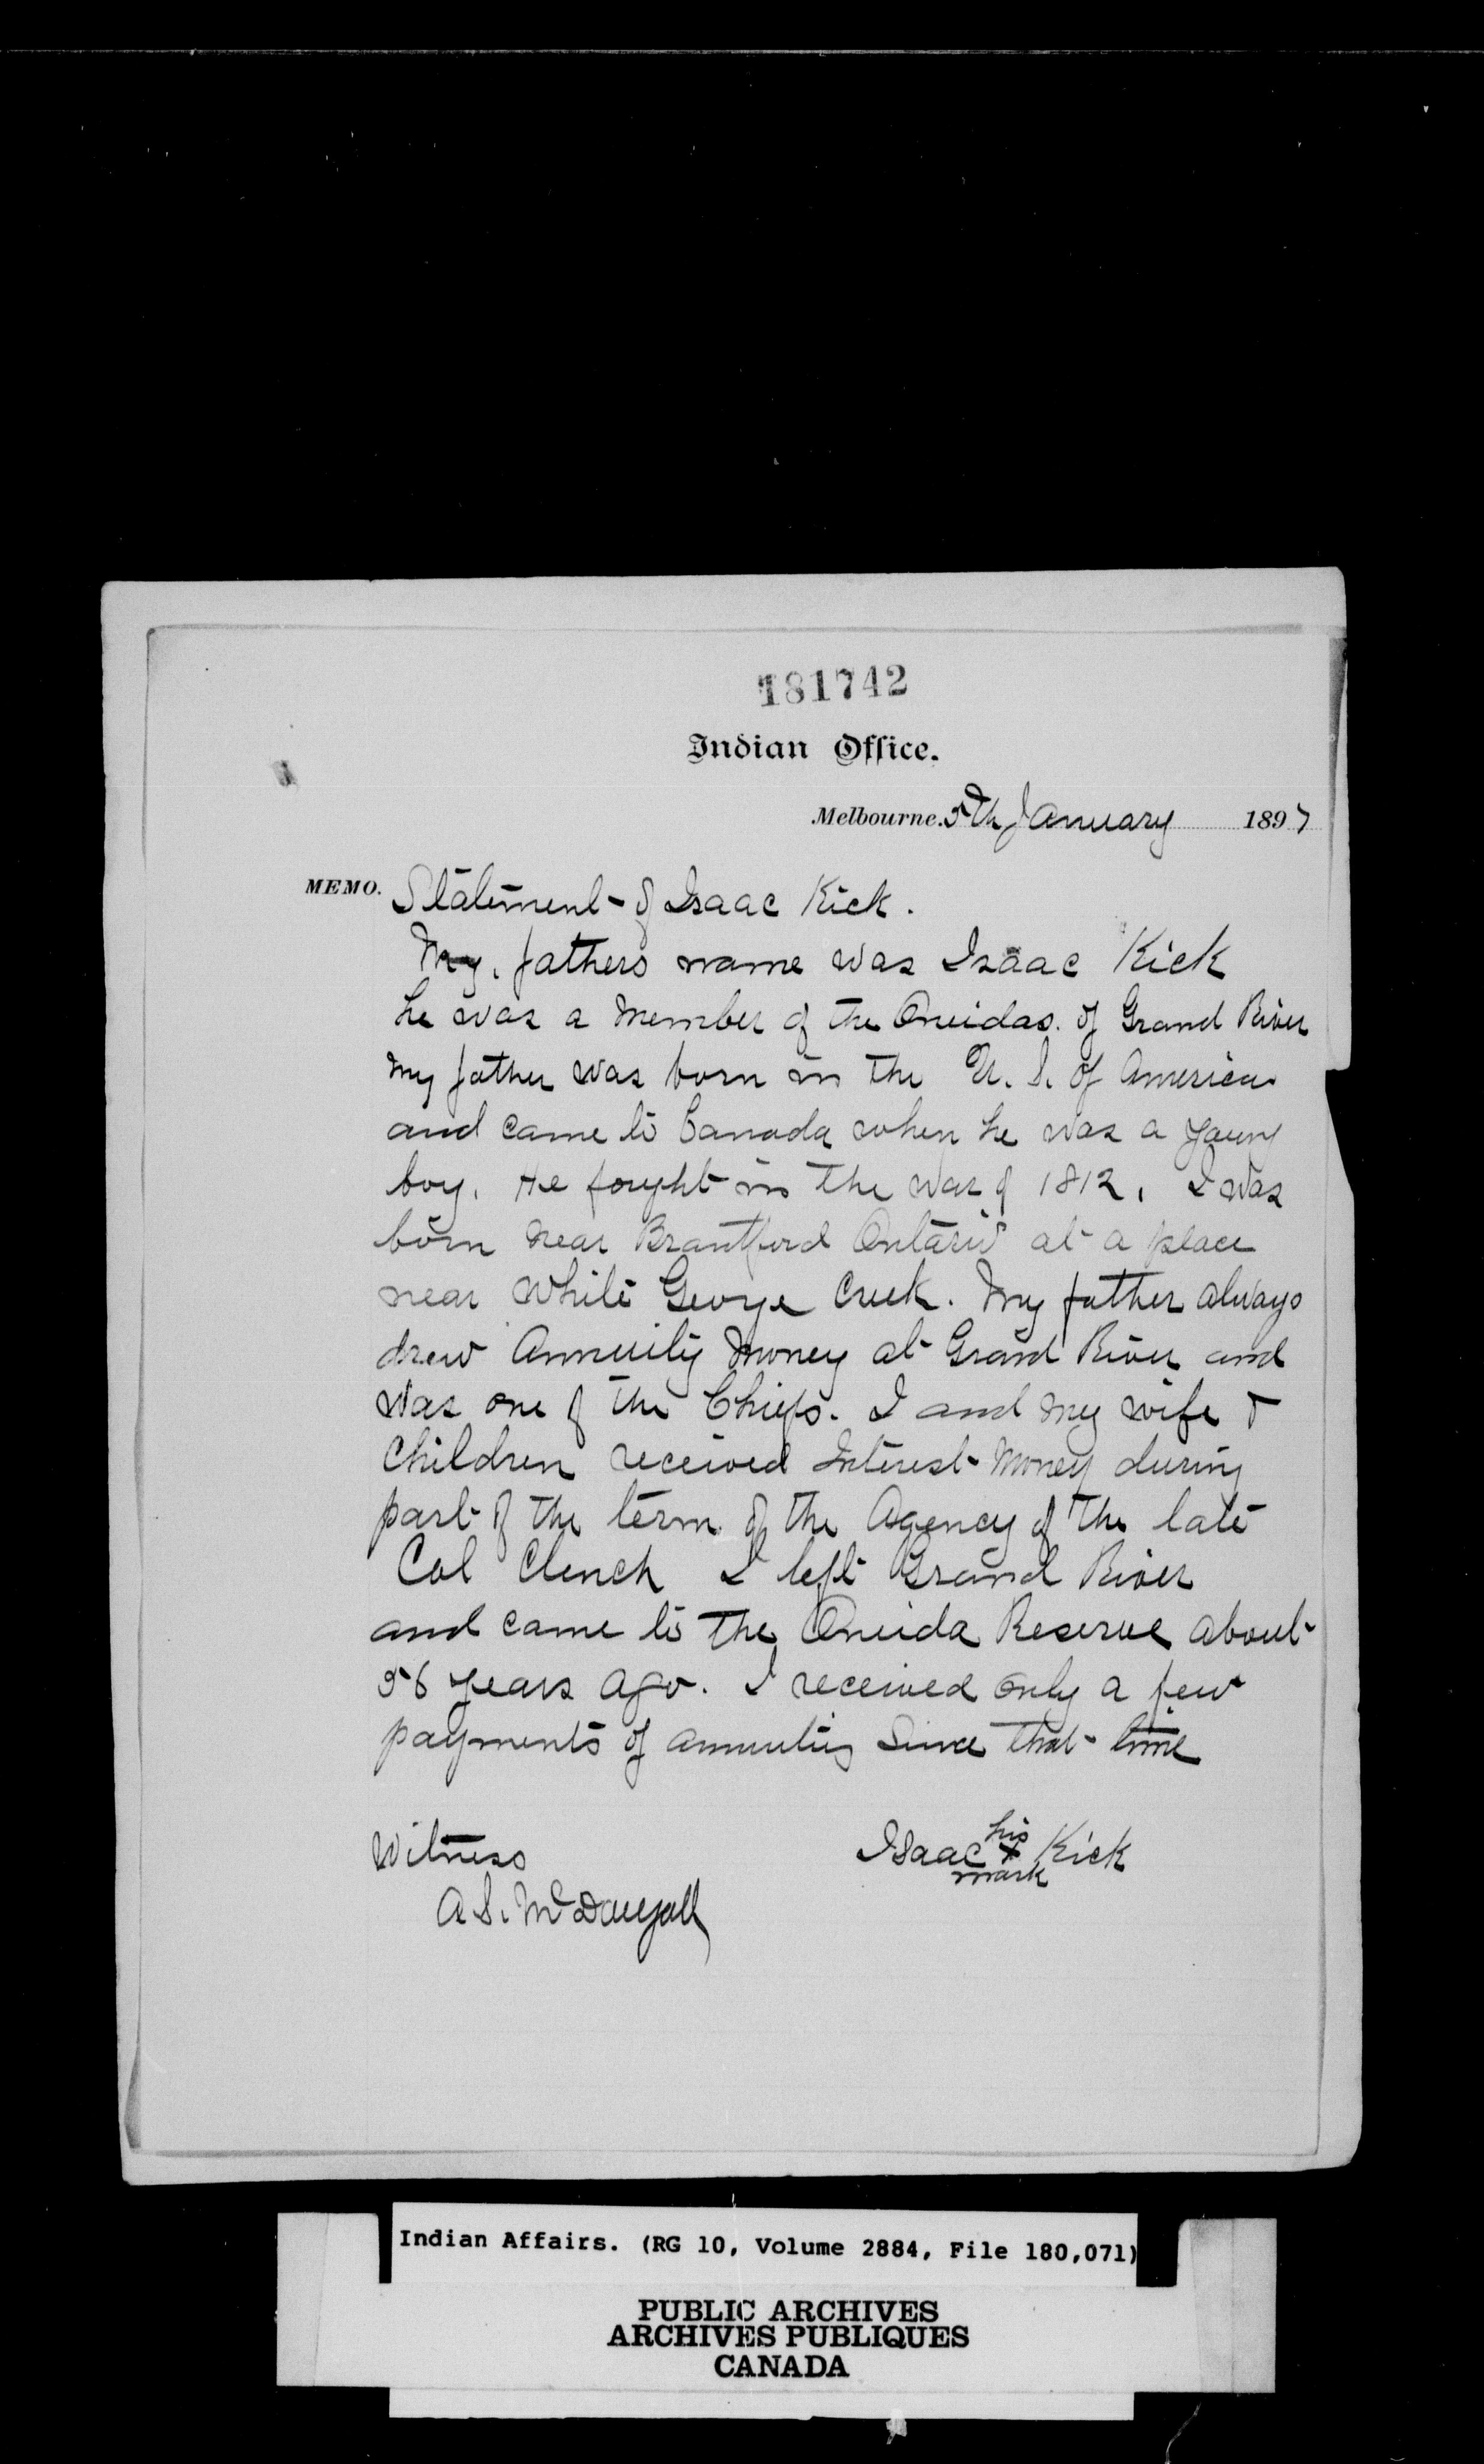 181742
Indian Office.
Melbourne. 5th January 1897
MEMO.
Statement of Isaac Kick.
My. fathers name was Isaac Kick
he was a member of the Oneidas. of Grand River
my father was born in the U. S. of America
and came to Canada when he was a young
boy. He fought in the war of 1812. I was
born near Brantford Ontario at a place
near White George Creek. My father always
drew Annuity Money at Grand River and
was one of the Chiefs. I and my wife &
Children received Interest Money during
part of the term of the Agency of the late
Col Clench I left Grand River
and came to the Oneida Reserve about
56 years ago. I received only a few
payments of annuities since that time
Witness
Isaac his x mark Kick
A. S. McDougall
Indian Affairs. (RG 10, Volume 2884, File 180,071)
PUBLIC ARCHIVES
ARCHIVES PUBLIQUES
CANADA